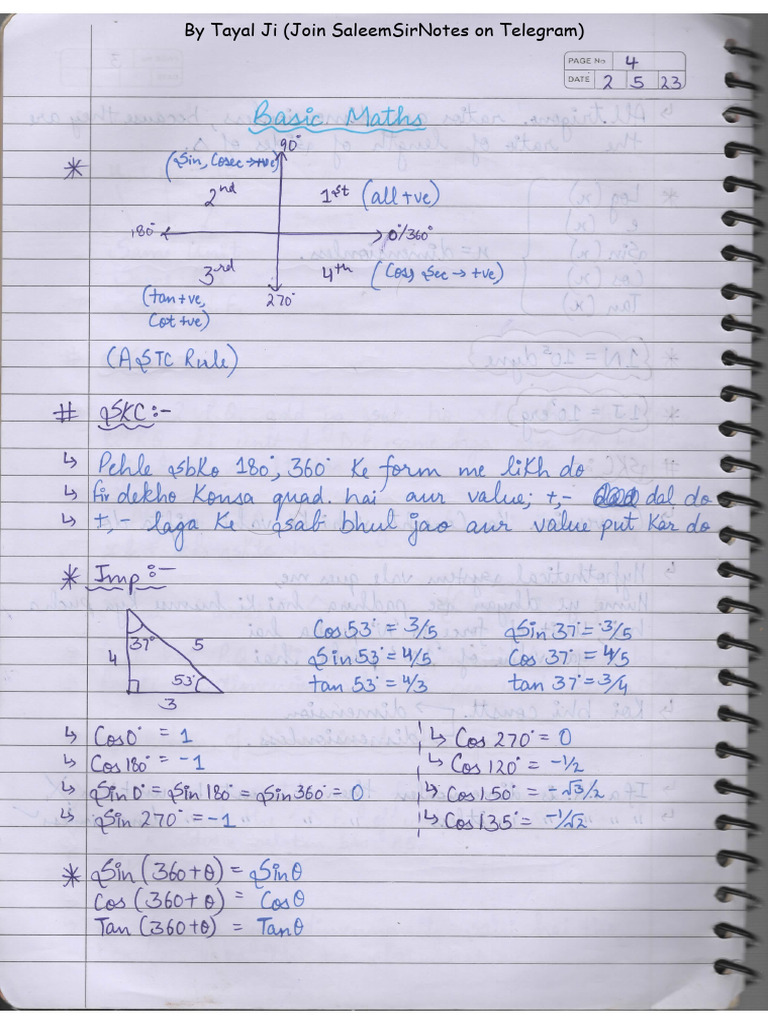 By Tayal Ji (Join SaleemSirNotes on Telegram)
PAGE No 4
DATE 2 5 23
Basic Maths
*
90°
(Sin, Cosec → +ve)
2nd 1st (all +ve)
180° 0°/360°
3rd 4th (Cos, Sec → +ve)
(tan +ve, 270°
Cot +ve)
(ASTC Rule)
# SKC :-
↳ Pehle sbko 180°, 360° ke form me likh do
↳ fir dekho konsa quad. hai aur value; +,- dal do
↳ +,- laga ke sab bhul jao aur value put kar do
* Imp :-
37° 5 Cos 53° = 3/5 Sin 37° = 3/5
4 53° Sin 53° = 4/5 Cos 37° = 4/5
3 tan 53° = 4/3 tan 37° = 3/4
↳ Cos 0° = 1 ↳ Cos 270° = 0
↳ Cos 180° = -1 ↳ Cos 120° = -1/2
↳ Sin 0° = Sin 180° = Sin 360° = 0 ↳ Cos 150° = -√3/2
↳ Sin 270° = -1 ↳ Cos 135° = -1/√2
* Sin (360+θ) = Sinθ
Cos (360+θ) = Cosθ
Tan (360+θ) = Tanθ